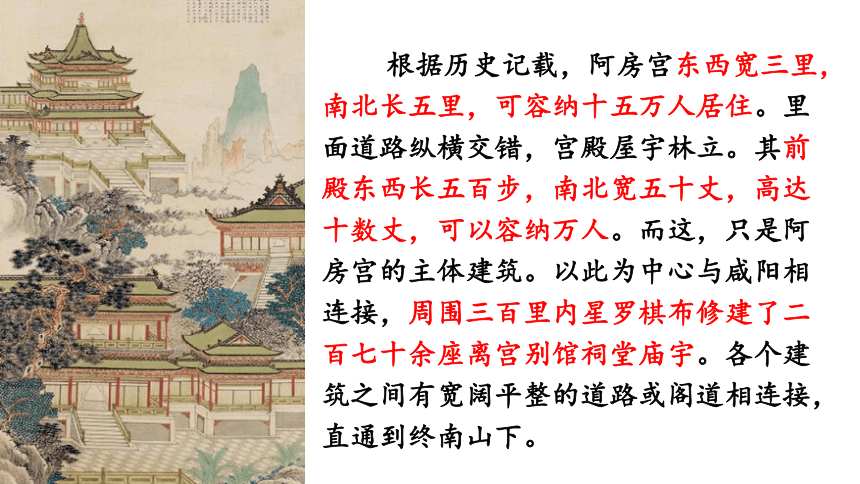 根据历史记载，阿房宫东西宽三里，
南北长五里，可容纳十五万人居住。里
面道路纵横交错，宫殿屋宇林立。其前
殿东西长五百步，南北宽五十丈，高达
十数丈，可以容纳万人。而这，只是阿
房宫的主体建筑。以此为中心与咸阳相
连接，周围三百里内星罗棋布修建了二
百七十余座离宫别馆祠堂庙宇。各个建
筑之间有宽阔平整的道路或阁道相连接，
直通到终南山下。